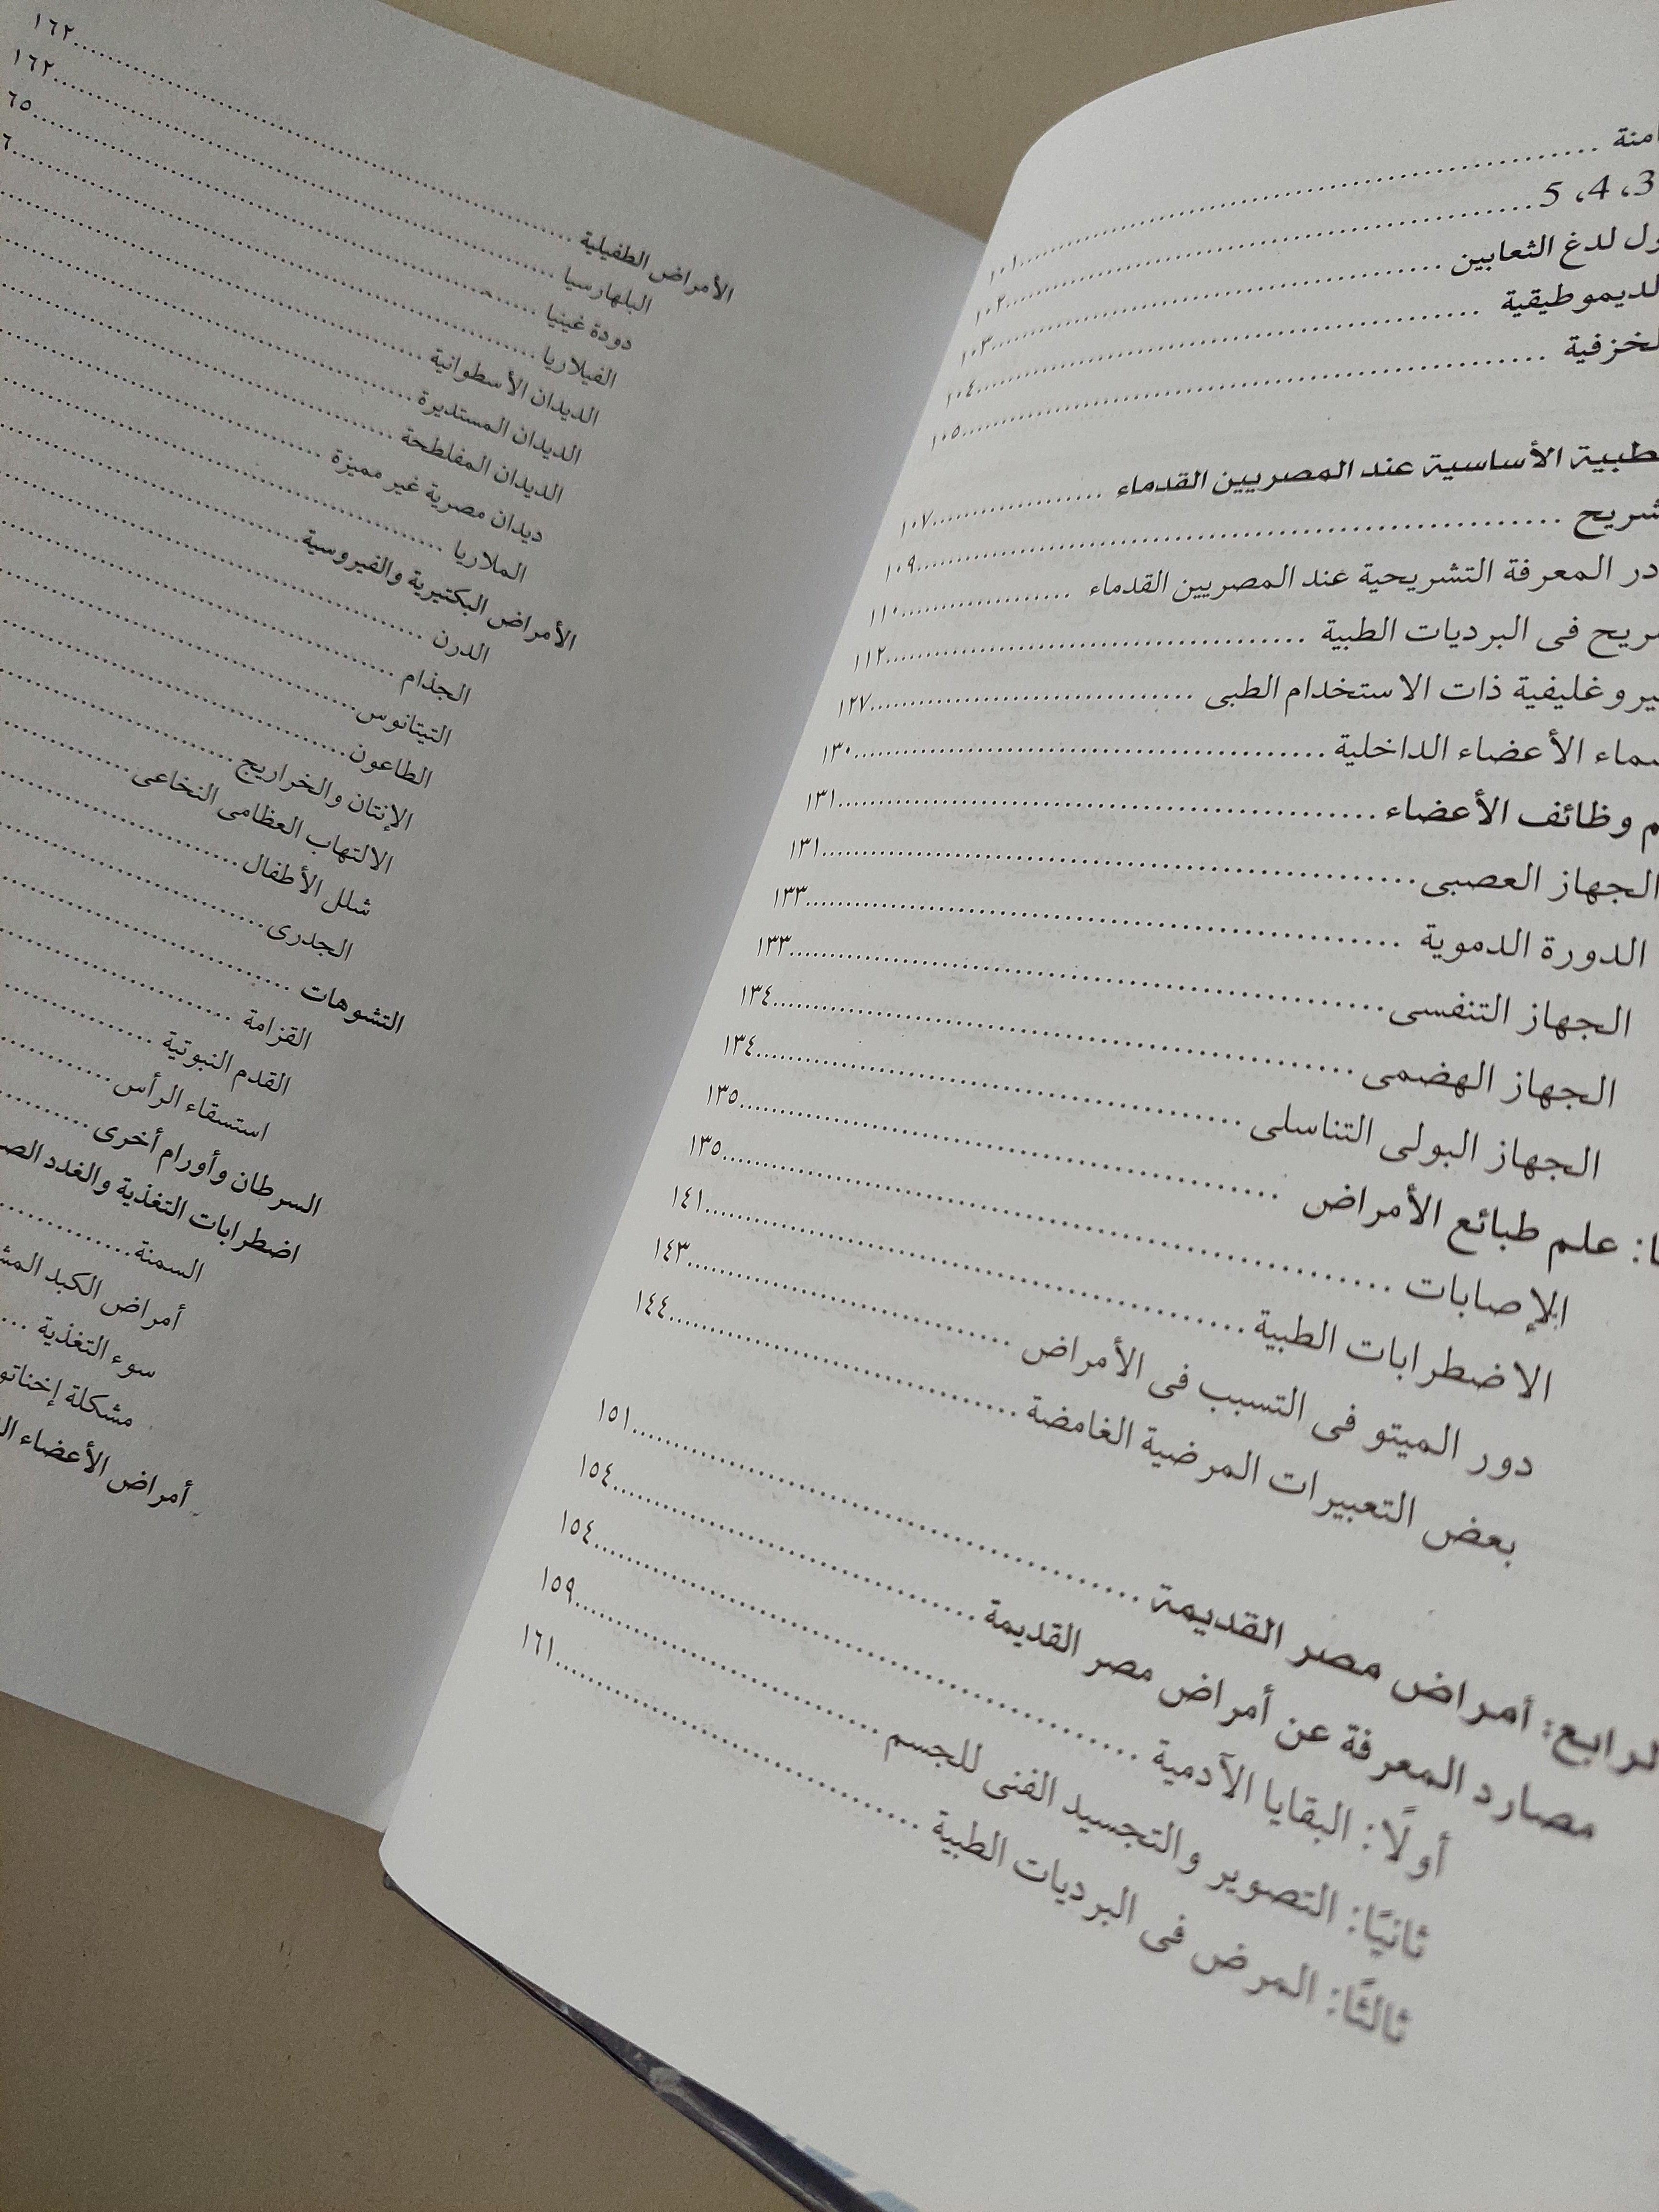 امنة ........ ١٠١
3، 4، 5 ........ ١٠٢
ول لدغ الثعابين ........ ١٠٣
لديموطيقية ........ ١٠٤
لخزفية ........ ١٠٥
طبية الأساسية عند المصريين القدماء ........ ١٠٧
شريح ........ ١٠٩
در المعرفة التشريحية عند المصريين القدماء ........ ١١٠
ريح فى البرديات الطبية ........ ١١٢
يروغليفية ذات الاستخدام الطبى ........ ١٢٧
ماء الأعضاء الداخلية ........ ١٣٠
م وظائف الأعضاء ........ ١٣١
الجهاز العصبى ........ ١٣١
الدورة الدموية ........ ١٣٣
الجهاز التنفسى ........ ١٣٣
الجهاز الهضمى ........ ١٣٤
الجهاز البولى التناسلى ........ ١٣٤
ا: علم طبائع الأمراض ........ ١٣٥
الإصابات ........ ١٣٥
الاضطرابات الطبية ........ ١٤١
دور الميتو فى التسبب فى الأمراض ........ ١٤٣
بعض التعبيرات المرضية الغامضة ........ ١٤٤
لرابع: أمراض مصر القديمة ........ ١٥١
مصارد المعرفة عن أمراض مصر القديمة ........ ١٥٤
أولًا: البقايا الآدمية ........ ١٥٤
ثانيًا: التصوير والتجسيد الفنى للجسم ........ ١٥٩
ثالثًا: المرض فى البرديات الطبية ........ ١٦١
الأمراض الطفيلية ........ ١٦٢
البلهارسيا ........ ١٦٢
دودة غينيا ........ ٦٥
الفيلاريا ........ ٦
الديدان الأسطوانية ........
الديدان المستديرة ........
الديدان المفلطحة ........
ديدان مصرية غير مميزة ........
الملاريا ........
الأمراض البكتيرية والفيروسية ........
الدرن ........
الجذام ........
التيتانوس ........
الطاعون ........
الإنتان والخراريج ........
الالتهاب العظامى النخاعى ........
شلل الأطفال ........
الجدرى ........
التشوهات ........
القزامة ........
القدم النبوتية ........
استسقاء الرأس ........
السرطان وأورام أخرى ........
اضطرابات التغذية والغدد الص
السمنة ........
أمراض الكبد المش
سوء التغذية ...
مشكلة إخناتو
أمراض الأعضاء ال